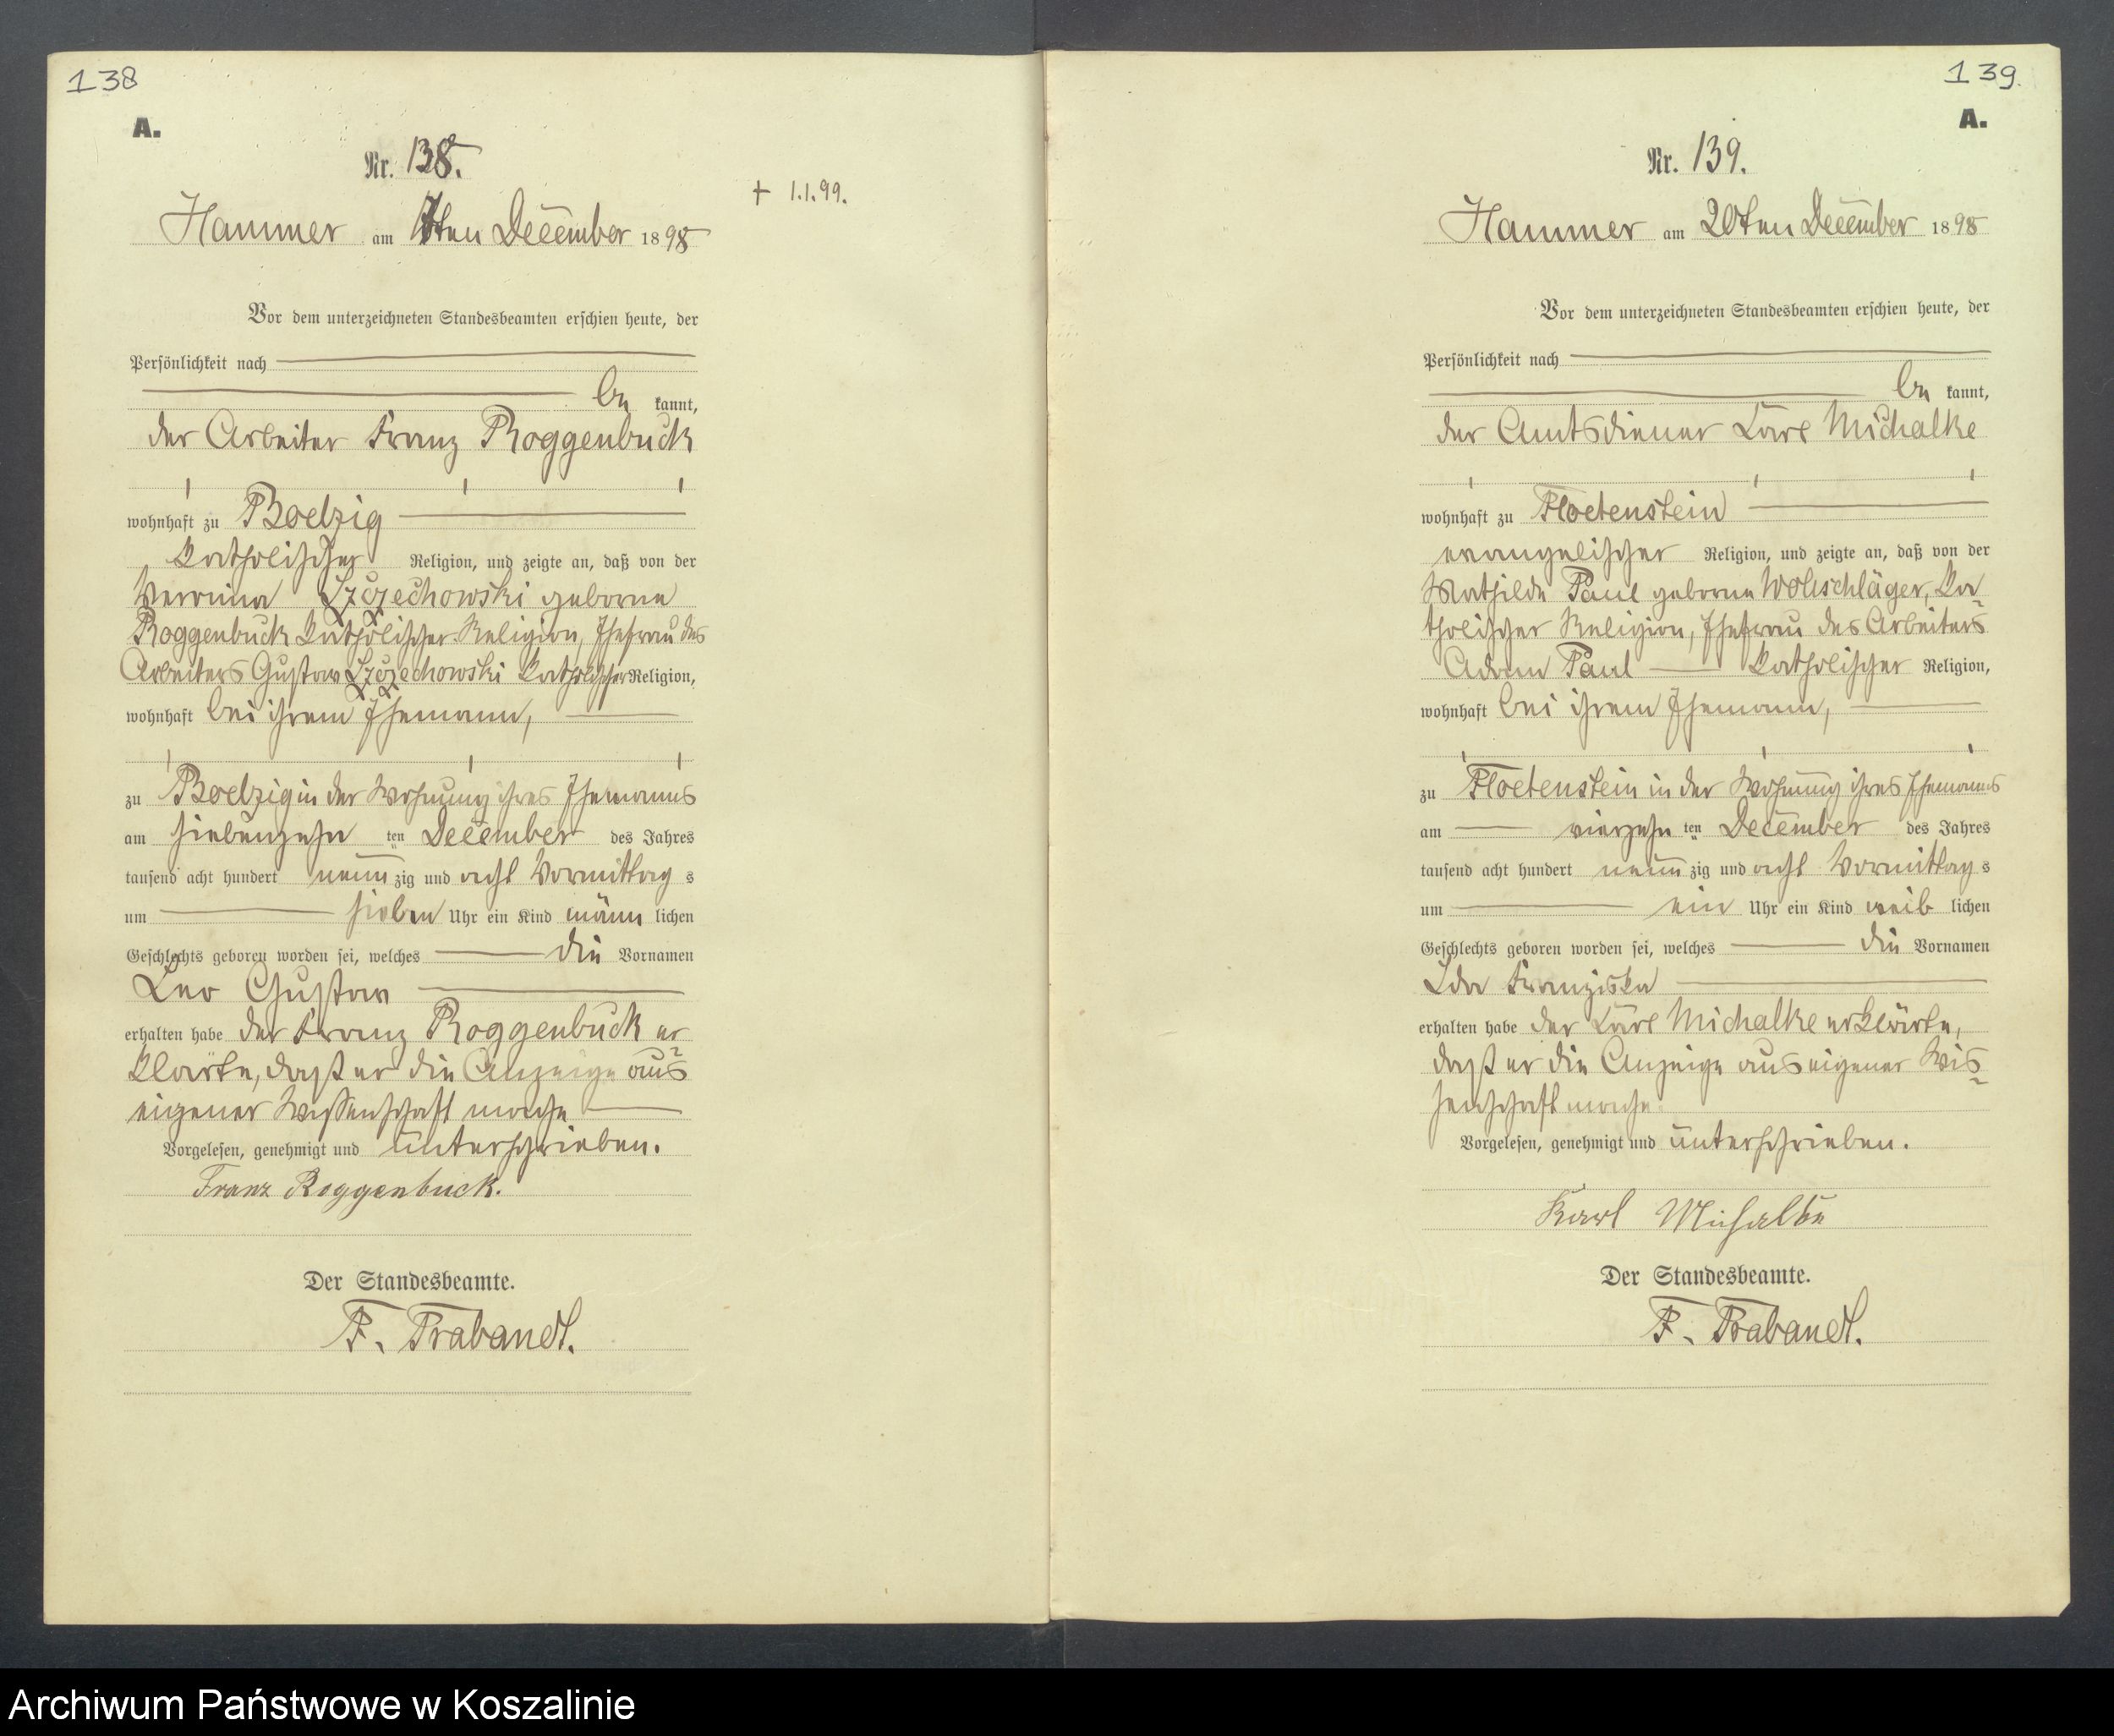 138
A.
Nr. 138.
+ 1.1.99.
Hammer am ten December 1898
Vor dem unterzeichneten Standesbeamten erschien heute, der
Persönlichkeit nach
be kannt,
der Arbeiter Franz Roggenbuck
wohnhaft zu Boelzig
katholischer Religion, und zeigte an, daß von der
Szczechowski geborne
Roggenbuck katholischer Religion, Ehefrau des
Arbeiters Gustav Szczechowski katholischer Religion,
wohnhaft bei ihrem Ehemann,
zu Boelzig in der Wohnung ihres Ehemanns
am siebenzehn ten December des Jahres
tausend acht hundert neun zig und acht Vormittag s
um sieben Uhr ein Kind männ lichen
Geschlechts geboren worden sei, welches die Vornamen
Leo Gustav
erhalten habe der Franz Roggenbuck er
klärte, daß er die Anzeige aus
eigener Wissenschaft mache
Vorgelesen, genehmigt und unterschrieben.
Franz Roggenbuck.
Der Standesbeamte.
F. Prabandt.
139.
A.
Nr. 139.
Hammer am 20ten December 1898
Vor dem unterzeichneten Standesbeamten erschien heute, der
Persönlichkeit nach
be kannt,
der Amtsdiener Karl Michalke
wohnhaft zu Floetenstein
evangelischer Religion, und zeigte an, daß von der
Mathilde Paul geborne Wollschläger, ka-
tholischer Religion, Ehefrau des Arbeiters
Adam Paul katholischer Religion,
wohnhaft bei ihrem Ehemann,
zu Floetenstein in der Wohnung ihres Ehemanns
am vierzehn ten December des Jahres
tausend acht hundert neun zig und acht Vormittag s
um ein Uhr ein Kind weib lichen
Geschlechts geboren worden sei, welches die Vornamen
Ida Franziska
erhalten habe der Karl Michalke erklärte,
daß er die Anzeige aus eigener Wis-
senschaft mache.
Vorgelesen, genehmigt und unterschrieben.
Karl Michalke
Der Standesbeamte.
F. Prabandt.
Archiwum Państwowe w Koszalinie